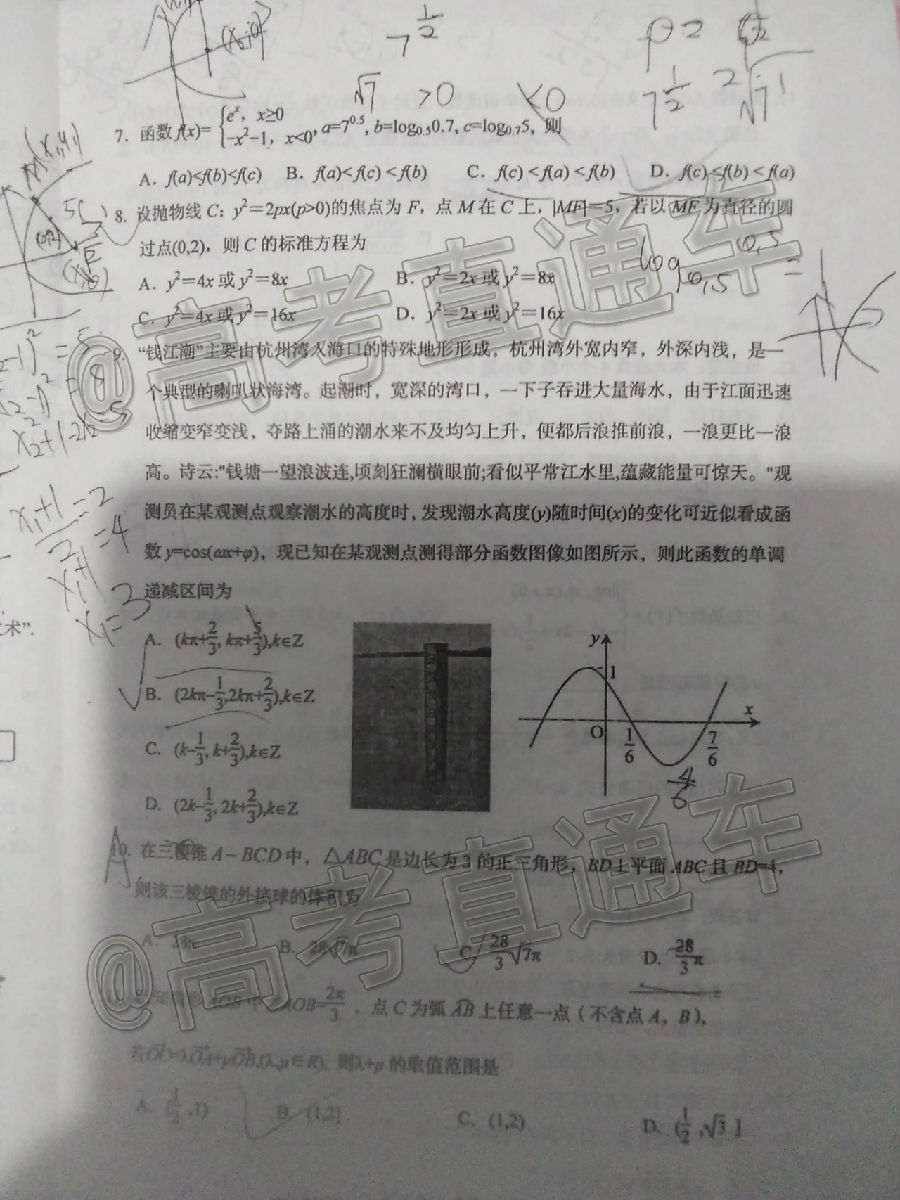 7^{1/2}
√7 >0 <0
7^{1/2} 2√7^1
7. 函数f(x)={e^x, x≥0
-x^2-1, x<0, a=7^{0.5}, b=log_{0.5}0.7, c=log_{0.7}5, 则
A. f(a)<f(b)<f(c) B. f(a)<f(c)<f(b) C. f(c)<f(a)<f(b) D. f(c)<f(b)<f(a)
8. 设抛物线 C: y^2=2px(p>0)的焦点为 F, 点 M 在 C 上, |MF|=5, 若以 MF 为直径的圆
过点(0,2), 则 C 的标准方程为
A. y^2=4x 或 y^2=8x B. y^2=2x 或 y^2=8x
C. y^2=4x 或 y^2=16x D. y^2=2x 或 y^2=16x
9. “钱江潮”主要由杭州湾入海口的特殊地形形成，杭州湾外宽内窄，外深内浅，是一
个典型的喇叭状海湾。起潮时，宽深的湾口，一下子吞进大量海水，由于江面迅速
收缩变窄变浅，夺路上涌的潮水来不及均匀上升，便都后浪推前浪，一浪更比一浪
高。诗云:"钱塘一望浪波连,顷刻狂澜横眼前;看似平常江水里,蕴藏能量可惊天。"观
测员在某观测点观察潮水的高度时，发现潮水高度(y)随时间(x)的变化可近似看成函
数 y=cos(ωx+φ)，现已知在某观测点测得部分函数图像如图所示，则此函数的单调
递减区间为
A. (kπ+2/3, kπ+5/3),k∈Z
B. (2kπ-1/3,2kπ+2/3),k∈Z
C. (k-1/3, k+2/3),k∈Z
D. (2k-1/3, 2k+2/3),k∈Z
y
1
x
O
1/6
7/6
4/6
x_1+1=2
x_1=3
术”.
10. 在三棱锥 A-BCD 中，△ABC 是边长为 3 的正三角形，BD⊥平面 ABC 且 BD=4,
则该三棱锥的外接球的体积为
A. 28π B. 28√7π C. 28/3√7π D. 28/3π
AOB 中 AOB=2π/3, 点 C 为弧 AB 上任意一点（不含点 A，B），
若OC=λOA+μOB,(λ,μ∈R), 则λ+μ 的取值范围是
A. (1/2,1) B. (1,2] C. (1,2) D. (1/2,√3]
@高考直通车
@高考直通车